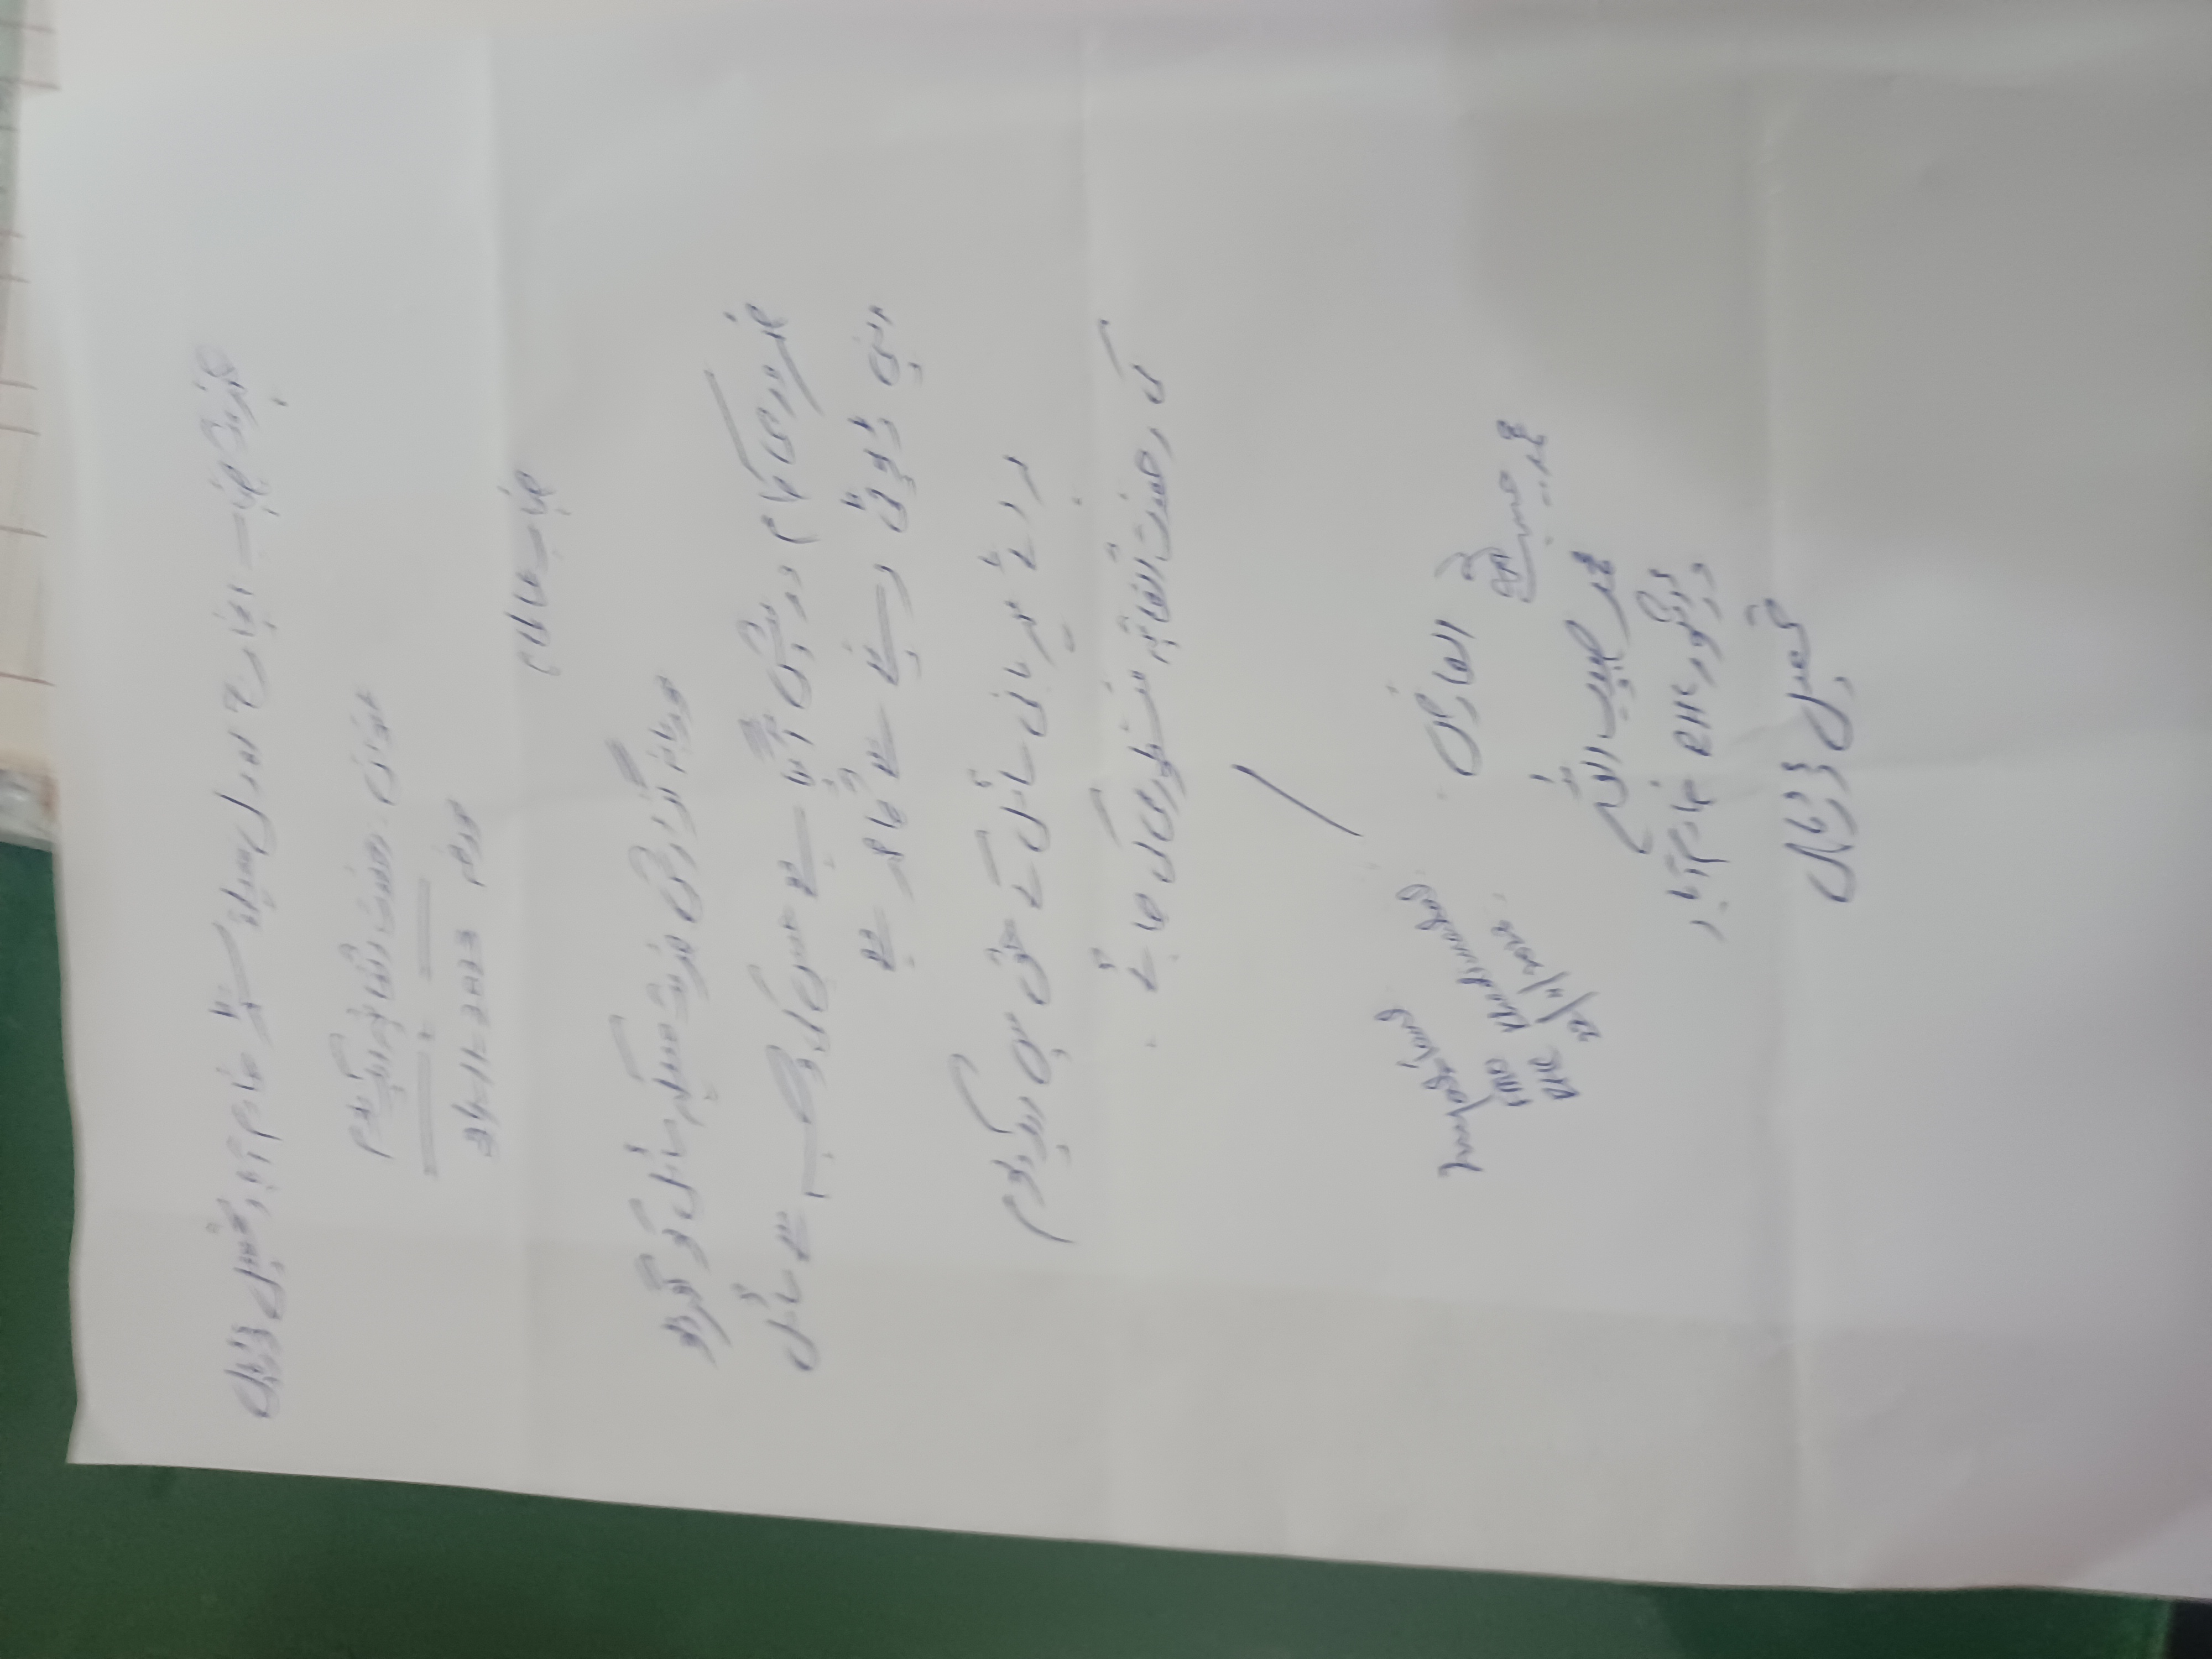 بخدمت جناب انچارج رورل ہیلتھ سنٹر خادم آباد تحصیل ڈڈیال
عنوان رخصت اتفاقیہ ایک یوم
مورخہ 21-11-2023
جناب عالی
مودبانہ گزارش خدمت ہیکہ سائل کو گھریلو
ضروری کام درپیش آ گیا ہے جس کی وجہ سے سائل
اپنی ڈیوٹی دینے سے قاصر ہے
برائے مہربانی سائل کے حق میں ایک یوم
کی رخصت اتفاقیہ منظوری کی جائے
العارض
محمد حبیب اللہ
RHC خادم آباد
تحصیل ڈڈیال
RHC Khadimabad
22/11/2023